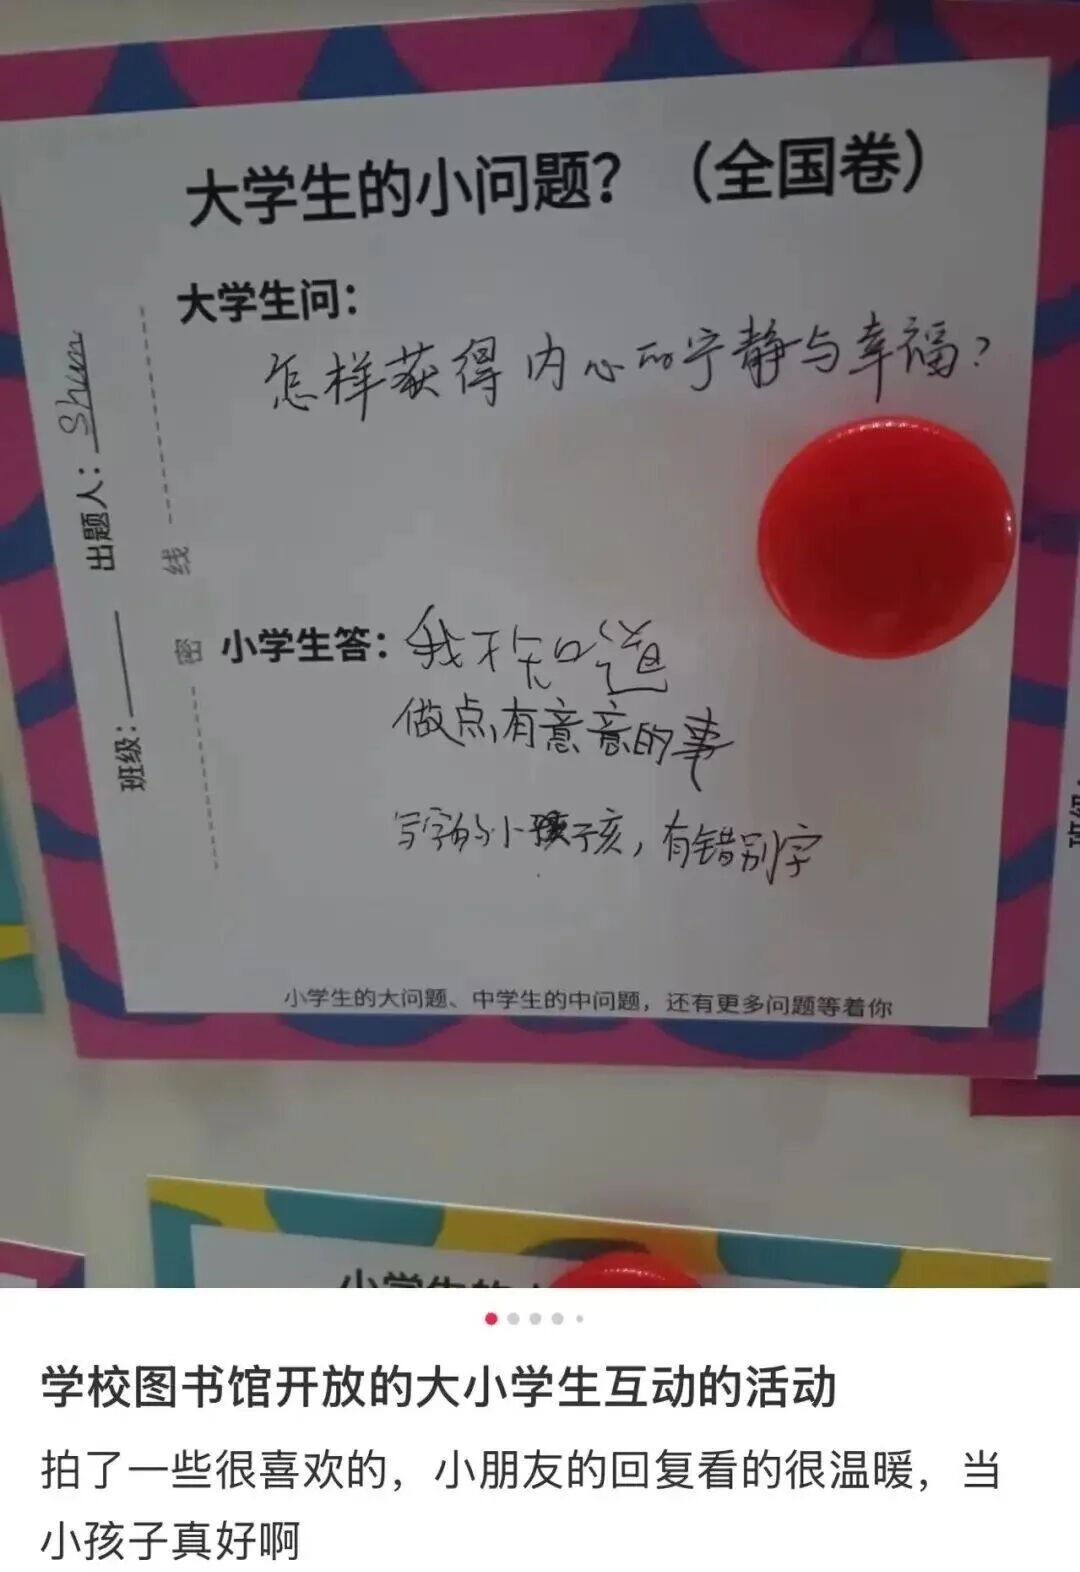 大学生的小问题？（全国卷）
大学生问：
怎样获得内心的宁静与幸福？
出题人：Shun
班级：
线
密
小学生答：我不知道
做点有意意的事
写字的小孩子孩，有错别字
小学生的大问题、中学生的中问题，还有更多问题等着你
小学生的
学校图书馆开放的大小学生互动的活动
拍了一些很喜欢的，小朋友的回复看的很温暖，当
小孩子真好啊